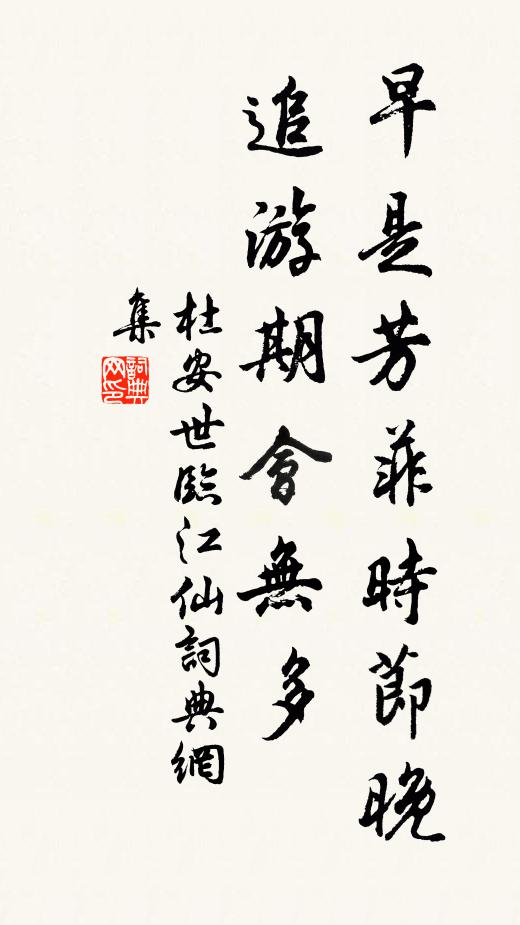 早是芳菲時節晚
追游期會無多
杜安世臨江仙詞典網
集
詞典網印